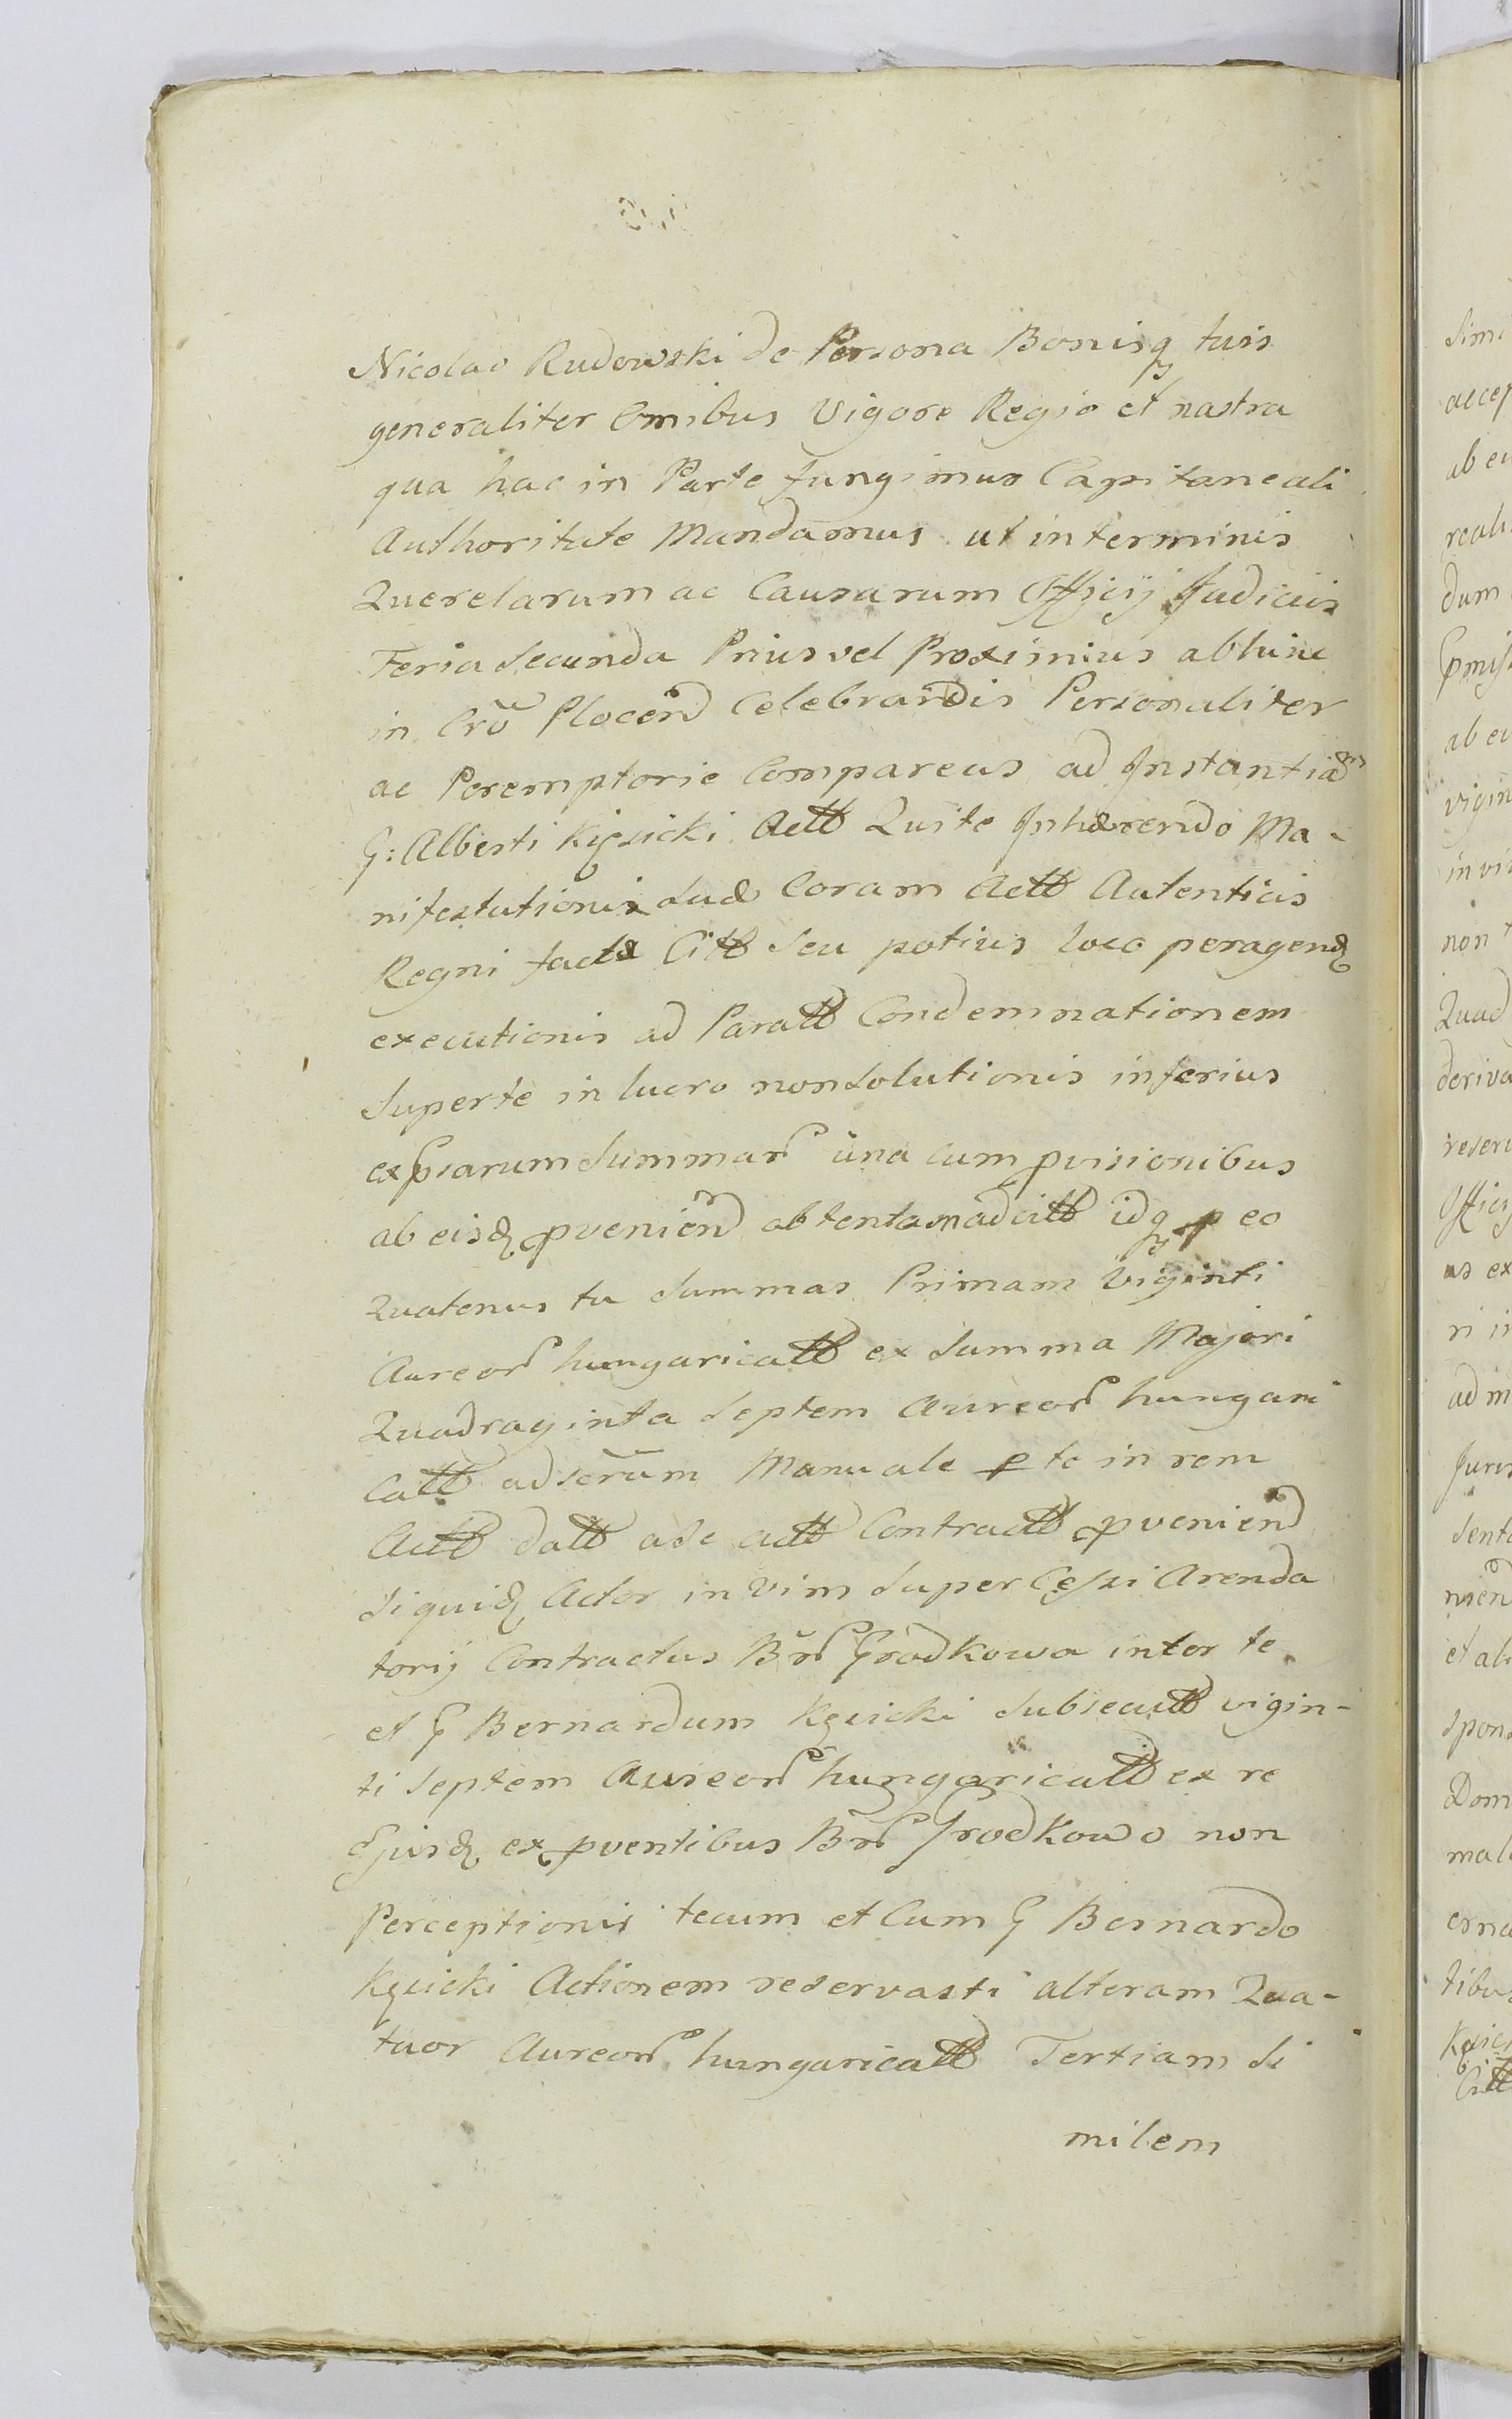 Nicolao Rudowski de Persona Bonisq tuis
generaliter Omibus Vigore Regio et nostra
qua hac in Parte fungimur Capitaneali
Authoritate Mandamus ut in terminis
Querelarum ac Causarum Officij Judiciis
Feria Secunda Prius vel Proximius abhinc
in Crō Plocen̄ Celebrandis Personaliter
ac Peremptorie Compareas ad Instantiam
G: Alberti Kęsicki Actt Qui te Inhærendo Ma-
nifestationi Suæ Coram Actt Autenticis
Regni factæ Citt Seu potius loco peragend
executionis ad Paratt Condemnationem
Super te in lucro non Solutionis inferius
exprsarum Summar una cum pvisionibus
ab eisd pvenien̄ obtentam adcitt idq p eo
Quatenus tu Summas Primam Viginti
Aureor hungaricatt ex Summa Majori
Quadraginta Septem Aureor hungari
Catt ad Scrūm Manuale p te in rem
Actt datt a Se Contractt pvenien̄
Siquid Actor in Vim Super Cessi Arenda
torij Contractus Bnr Grodkowa inter te
et G Bernardum Kęsicki Subsecutt vigin-
ti Septem Aureor hungaricatt ex re
Ejusd ex pventibus Bnr Grodkowo non
Perceptionis tecum et Cum G Bernardo
Kęsicki Actionem reservasti alteram Qua-
tuor Aureor hungaricatt Tertiam Si
milem